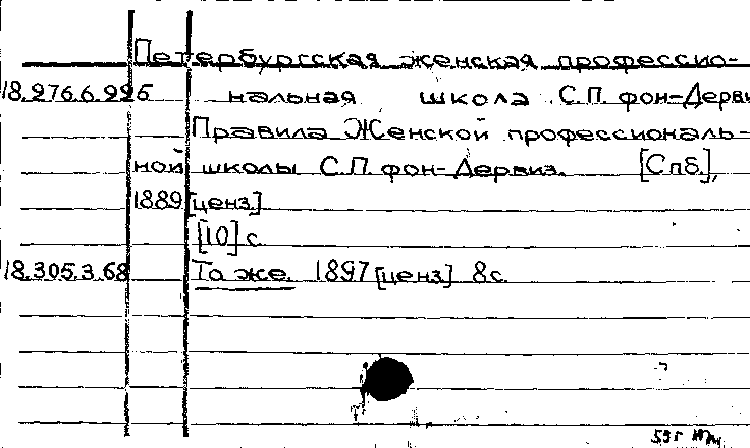 Петербургская женская профессио-
18.276.6.995 нальная школа С.П. фон-Дерви
Правила Женской профессиональ-
ной школы С.П. фон-Дервиз. [Спб.],
1889 [ценз.]
[10] с.
18.305.3.68 То же. 1897 [ценз] 8с.